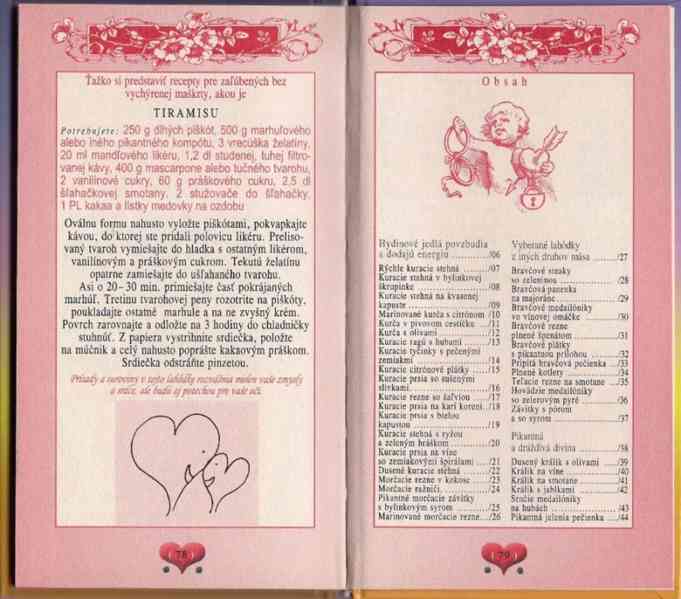 Ťažko si predstaviť recepty pre zaľúbených bez
vychýrenej maškrty, akou je
TIRAMISU
Potrebujete: 250 g dlhých piškót, 500 g marhuľového
alebo iného pikantného kompótu, 3 vrecúška želatíny,
20 ml mandľového likéru, 1,2 dl studenej, tuhej filtro-
vanej kávy, 400 g mascarpone alebo tučného tvarohu,
2 vanilínové cukry, 60 g práškového cukru, 2,5 dl
šľahačkovej smotany, 2 stužovače do šľahačky,
1 PL kakaa a lístky medovky na ozdobu
Oválnu formu nahusto vyložte piškótami, pokvapkajte
kávou, do ktorej ste pridali polovicu likéru. Preliso-
vaný tvaroh vymiešajte do hladka s ostatným likérom,
vanilínovým a práškovým cukrom. Tekutú želatínu
opatrne zamiešajte do ušľahaného tvarohu.
Asi o 20–30 min. primiešajte časť pokrájaných
marhúľ. Tretinu tvarohovej peny rozotrite na piškóty,
poukladajte ostatné marhule a na ne zvyšný krém.
Povrch zarovnajte a odložte na 3 hodiny do chladničky
stuhnúť. Z papiera vystrihnite srdiečka, položte
na múčnik a celý nahusto poprášte kakaovým práškom.
Srdiečka odstráňte pinzetou.
Prísady a suroviny v tejto lahôdke rozvášnia nielen vaše zmysly
a srdce, ale budú aj potechou pre vaše oči.
78
Obsah
Hydinové jedlá povzbudia
a dodajú energiu ............/06
Rýchle kuracie stehná ........./07
Kuracie stehná v bylinkovej
škrupinke ........................./08
Kuracie stehná na kvasenej
kapuste ............................/09
Marinované kurča s citrónom /10
Kurča v pivovom cestíčku ..../11
Kurča s olivami ................./12
Kuracie ragú s hubami ......../13
Kuracie tyčinky s pečenými
zemiakmi ........................./14
Kuracie citrónové plátky ....../15
Kuracie prsia so sušenými
slivkami .........................../16
Kuracie rezne so šalviou ....../17
Kuracie prsia na kari korení ../18
Kuracie prsia s bielou
kapustou ........................../19
Kuracie stehná s ryžou
a zeleným hráškom ............/20
Kuracie prsia na víne
so zemiakovými špirálami ..../21
Dusené kuracie stehná ......../22
Morčacie rezne v kokose ...../23
Morčacie ražniči ................/24
Pikantné morčacie závitky
s bylinkovým syrom ............/25
Marinované morčacie rezne.../26
Vyberané lahôdky
z iných druhov mäsa ....../27
Bravčové steaky
so zeleninou ...................../28
Bravčová panenka
na majoráne ....................../29
Bravčové medailóniky
vo vínovej omáčke ............./30
Bravčové rezne
plnené špenátom .............../31
Bravčové plátky
s pikantnou prílohou .........../32
Pripitá bravčová pečienka ..../33
Plnené kotlety .................../34
Teľacie rezne na smotane ..../35
Hovädzie medailóniky
so zelerovým pyré ............../36
Závitky s pórom
a so syrom ......................../37
Pikantná
a dráždivá divina ............/38
Dusený králik s olivami ......./39
Králik na víne ..................../40
Králik na smotane ............../41
Králik s jablkami ................/42
Srnčie medailóniky
na hubách ......................../43
Pikantná jelenia pečienka ..../44
79